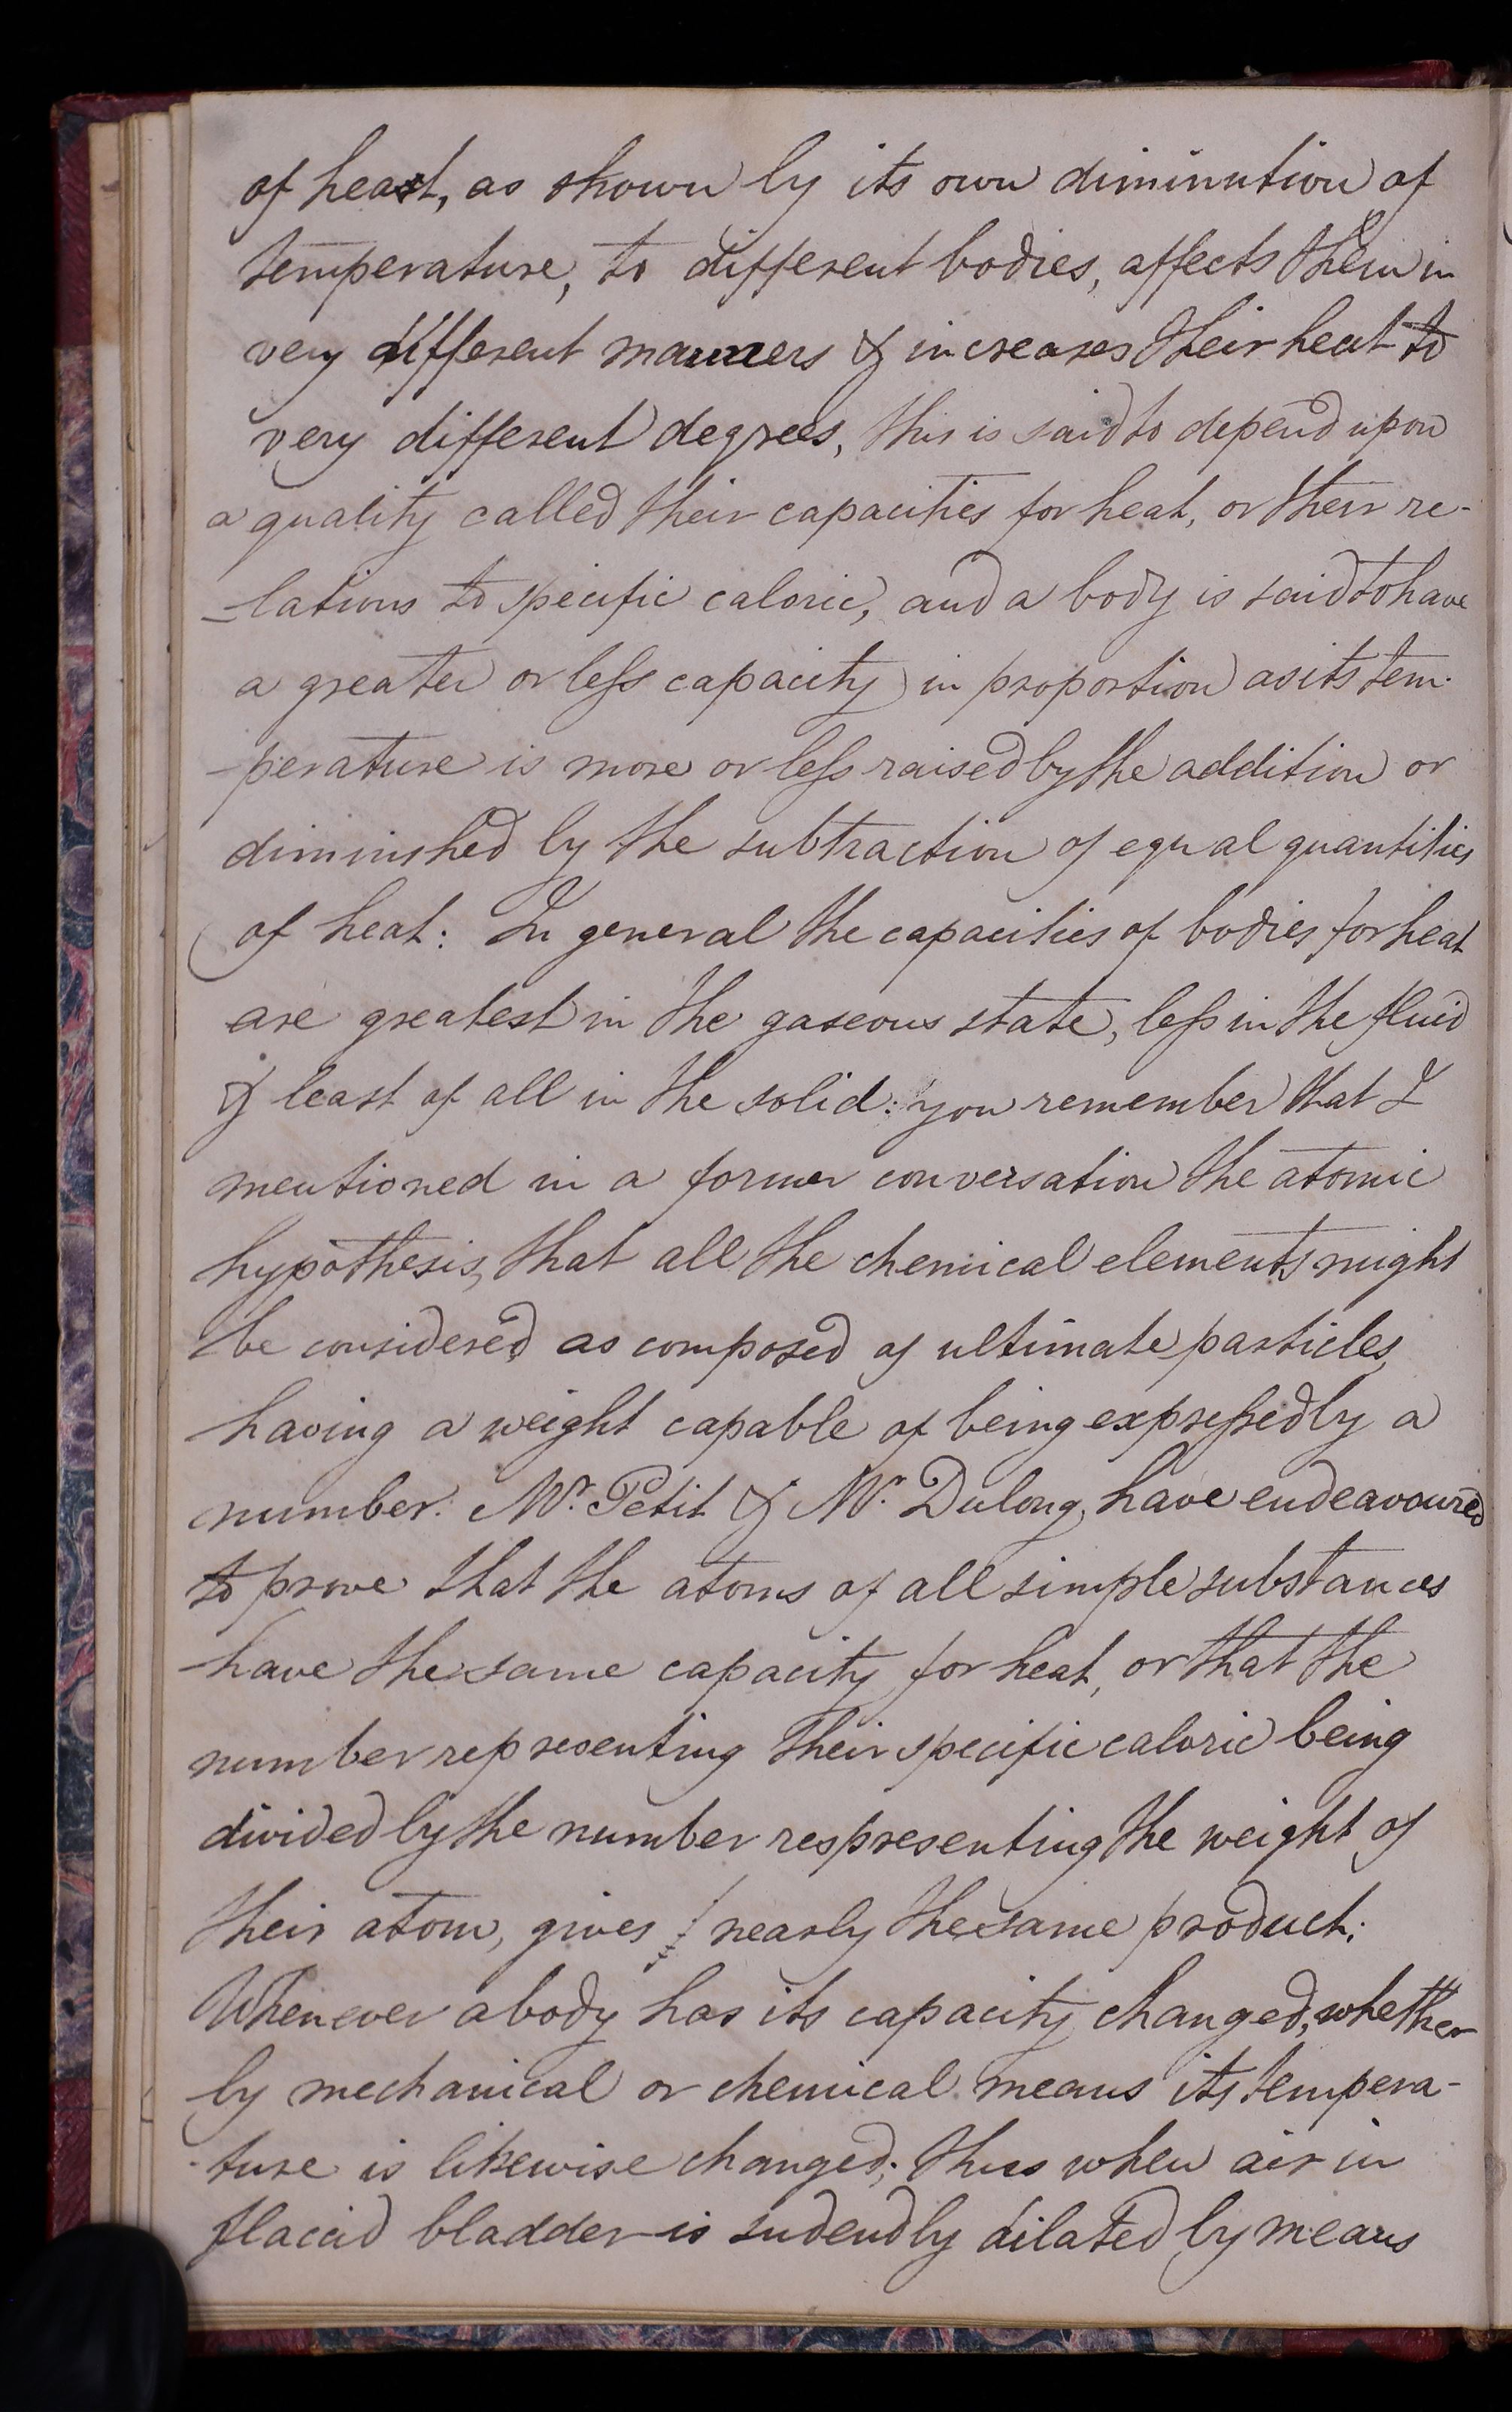 of heat, as shown by its own diminution of
temperature, to different bodies, affects them in
very different manners & increases their heat to
very different degrees, this is said to depend upon
a quality called their capacities for heat, or their re-
-lations to specific caloric, and a body is said to have
a greater or less capacity in proportion as its tem-
-perature is more or less raised by the addition or
diminished by the subtraction of equal quantities
of heat: In general the capacities of bodies for heat
are greatest in the gaseous state, less in the fluid
& least of all in the solid: you remember that I
mentioned in a former conversation the atomic
hypothesis, that all the chemical elements might
be considered as composed of ultimate particles,
having a weight capable of being expressed by a
number. Mr. Petit & Mr. Dulong, have endeavoured
to prove that the atoms of all simple substances
have the same capacity for heat, or that the
number representing their specific caloric being
divided by the number respresenting the weight of
their atom, gives nearly the same product:
Whenever a body has its capacity changed, whether
by mechanical or chemical means its tempera-
-ture is likewise changed; thus when air in
flaccid bladder is sudendly dilated by means